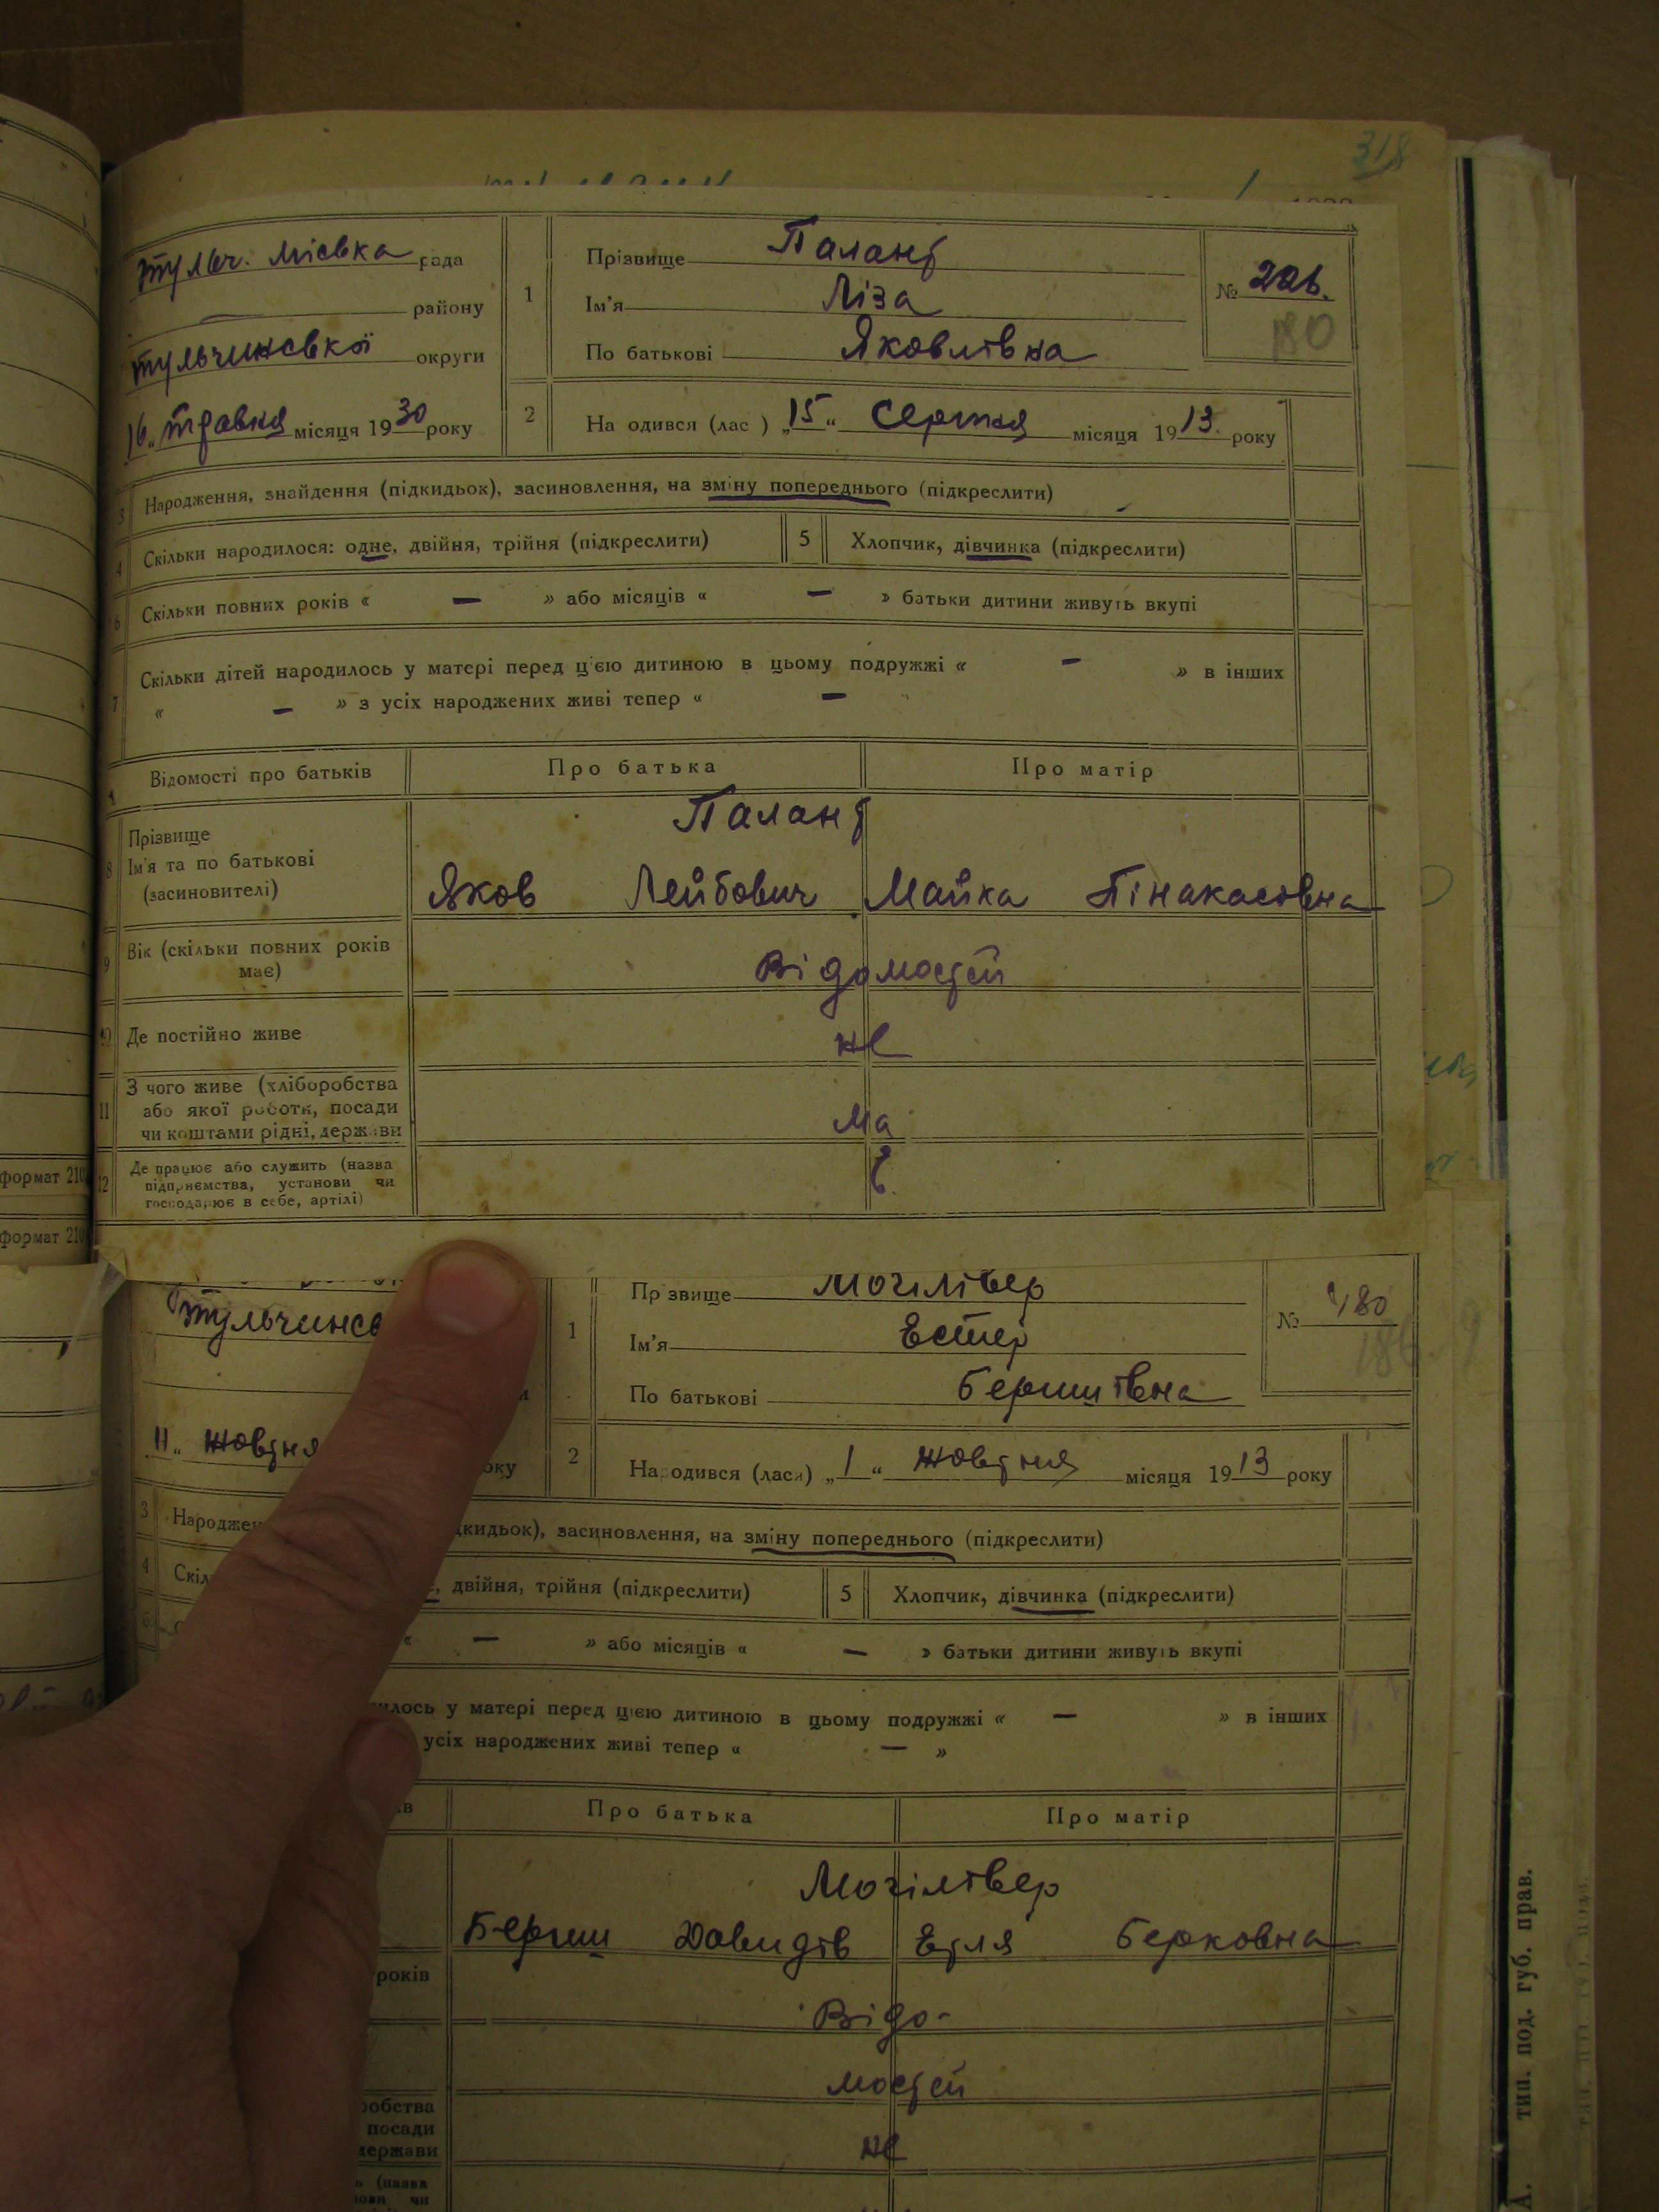 318
Тульч. міська рада
району
Тульчинської округи
16 „ травня місяця 1930 року
1
Прізвище Палант
Ім'я Ліза
По батькові Яковлівна
№ 226.
180
2
На одився (лас ) „15“ Серпня місяця 1913. року
3 Народження, знайдення (підкидьок), засиновлення, на зміну попереднього (підкреслити)
4 Скільки народилося: одне, двійня, трійня (підкреслити)
5 Хлопчик, дівчинка (підкреслити)
6 Скільки повних років « — » або місяців « — » батьки дитини живуть вкупі
7 Скільки дітей народилось у матері перед цією дитиною в цьому подружжі « — » в інших
« — » з усіх народжених живі тепер « —
Відомості про батьків
Про батька
Про матір
8 Прізвище
Ім'я та по батькові
(засиновителі)
Палант
Яков Лейбович Майка Пінакасовна
9 Вік (скільки повних років
має)
Відомостей
10 Де постійно живе
не
11 З чого живе (хліборобства
або якої роботи, посади
чи коштами рідні, держави
ма
12 Де працює або служить (назва
підприємства, установи чи
господарює в себе, артілі)
є.
формат 210
формат 210
Тульчинсь
11 „ жовтня
оку
1
Пр звище Могілівер
Ім'я Естер
По батькові Бершівна
№ 480
2
Народився (лася) „1“ жовтня місяця 1913 року
3 Народжен
дкидьок), засиновлення, на зміну попереднього (підкреслити)
4 Скіл
, двійня, трійня (підкреслити)
5 Хлопчик, дівчинка (підкреслити)
6
« — » або місяців « — » батьки дитини живуть вкупі
илось у матері перед цією дитиною в цьому подружжі « — » в інших
усіх народжених живі тепер « — »
ів
Про батька
Про матір
Могілівер
Берш Давидів Етля Берковна
років
Відо-
мостей
робства
посади
держави
не
(назва
ови чи
тип. под. губ. прав.